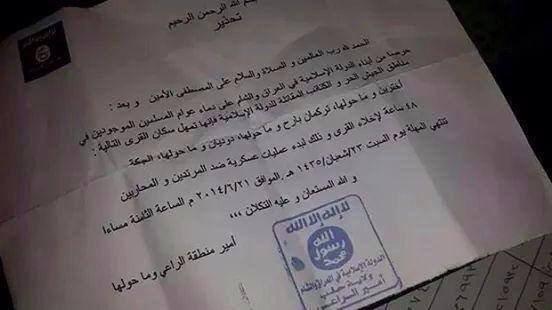 بسم الله الرحمن الرحيم
تحذير
الحمد لله رب العالمين و الصلاة والسلام على المصطفى الأمين و بعد :
حرصا من أبناء الدولة الإسلامية في العراق والشام على دماء عوام المسلمين الموجودين في
مناطق الجيش الحر و الكتائب المقاتلة للدولة الإسلامية فإنها تمهل سكان القرى التالية :
أخترين و ما حولها، تركمان بارح و ما حولها، دوديان و ما حولها، الحكة
٤٨ ساعة لإخلاء القرى و ذلك لبدء عمليات عسكرية ضد المرتدين و المحاربين
تنتهي المهلة يوم السبت ٢٣/شعبان/١٤٣٥ هـ الموافق ٢٠١٤/٦/٢١ م الساعة الثامنة مساءا
و الله المستعان و عليه التكلان ،،،
أمير منطقة الراعي وما حولها
لا إله إلا الله
الله
رسول
محمد
الدولة الإسلامية في العراق والشام
ولاية حلب
أمير الراعي